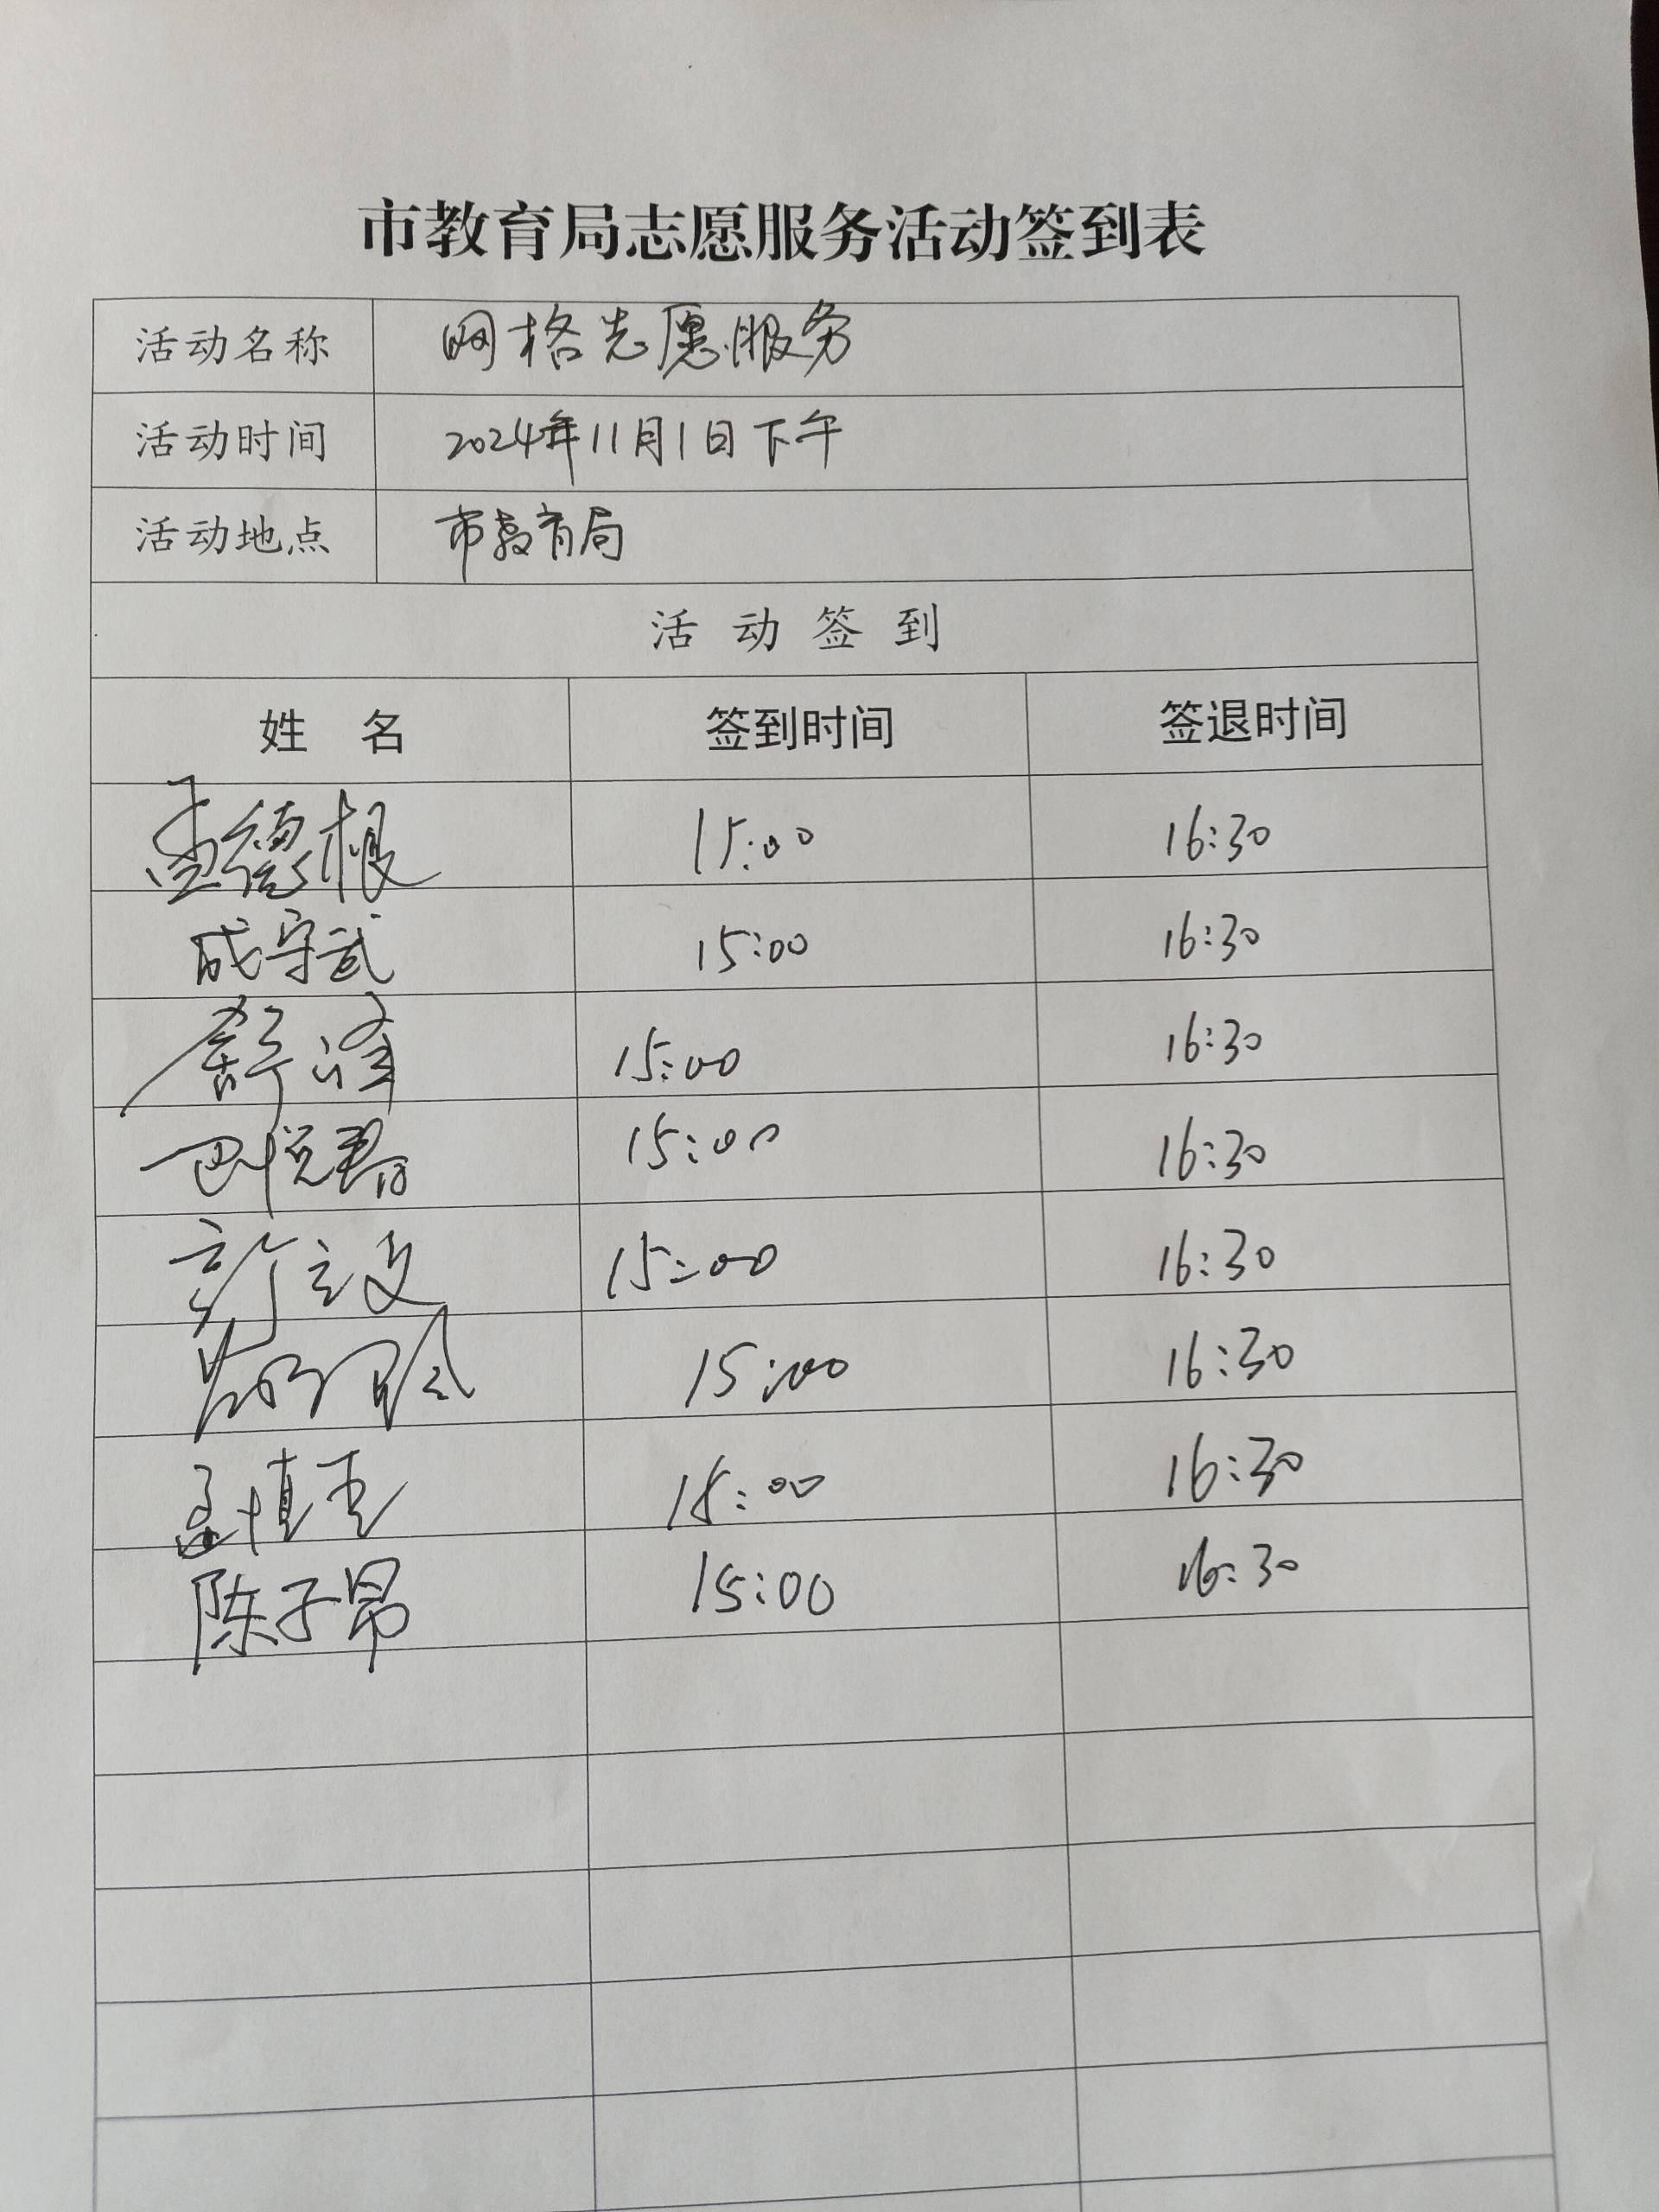 市教育局志愿服务活动签到表
活动名称 网格志愿服务
活动时间 2024年11月1日下午
活动地点 市教育局
活动签到
姓名 签到时间 签退时间
孟德根 15:00 16:30
成守武 15:00 16:30
舒谊 15:00 16:30
15:00 16:30
15:00 16:30
15:00 16:30
孟慎重 15:00 16:30
陈子昂 15:00 16:30